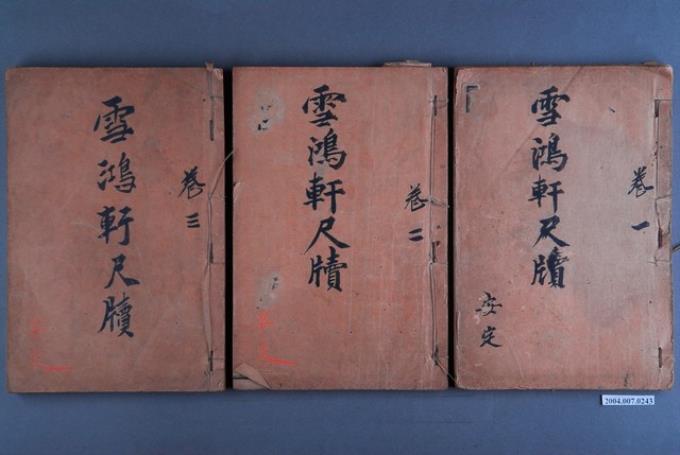 雪鴻軒尺牘
卷一
安定
雪鴻軒尺牘
卷二
雪鴻軒尺牘
卷三
2004.007.0243